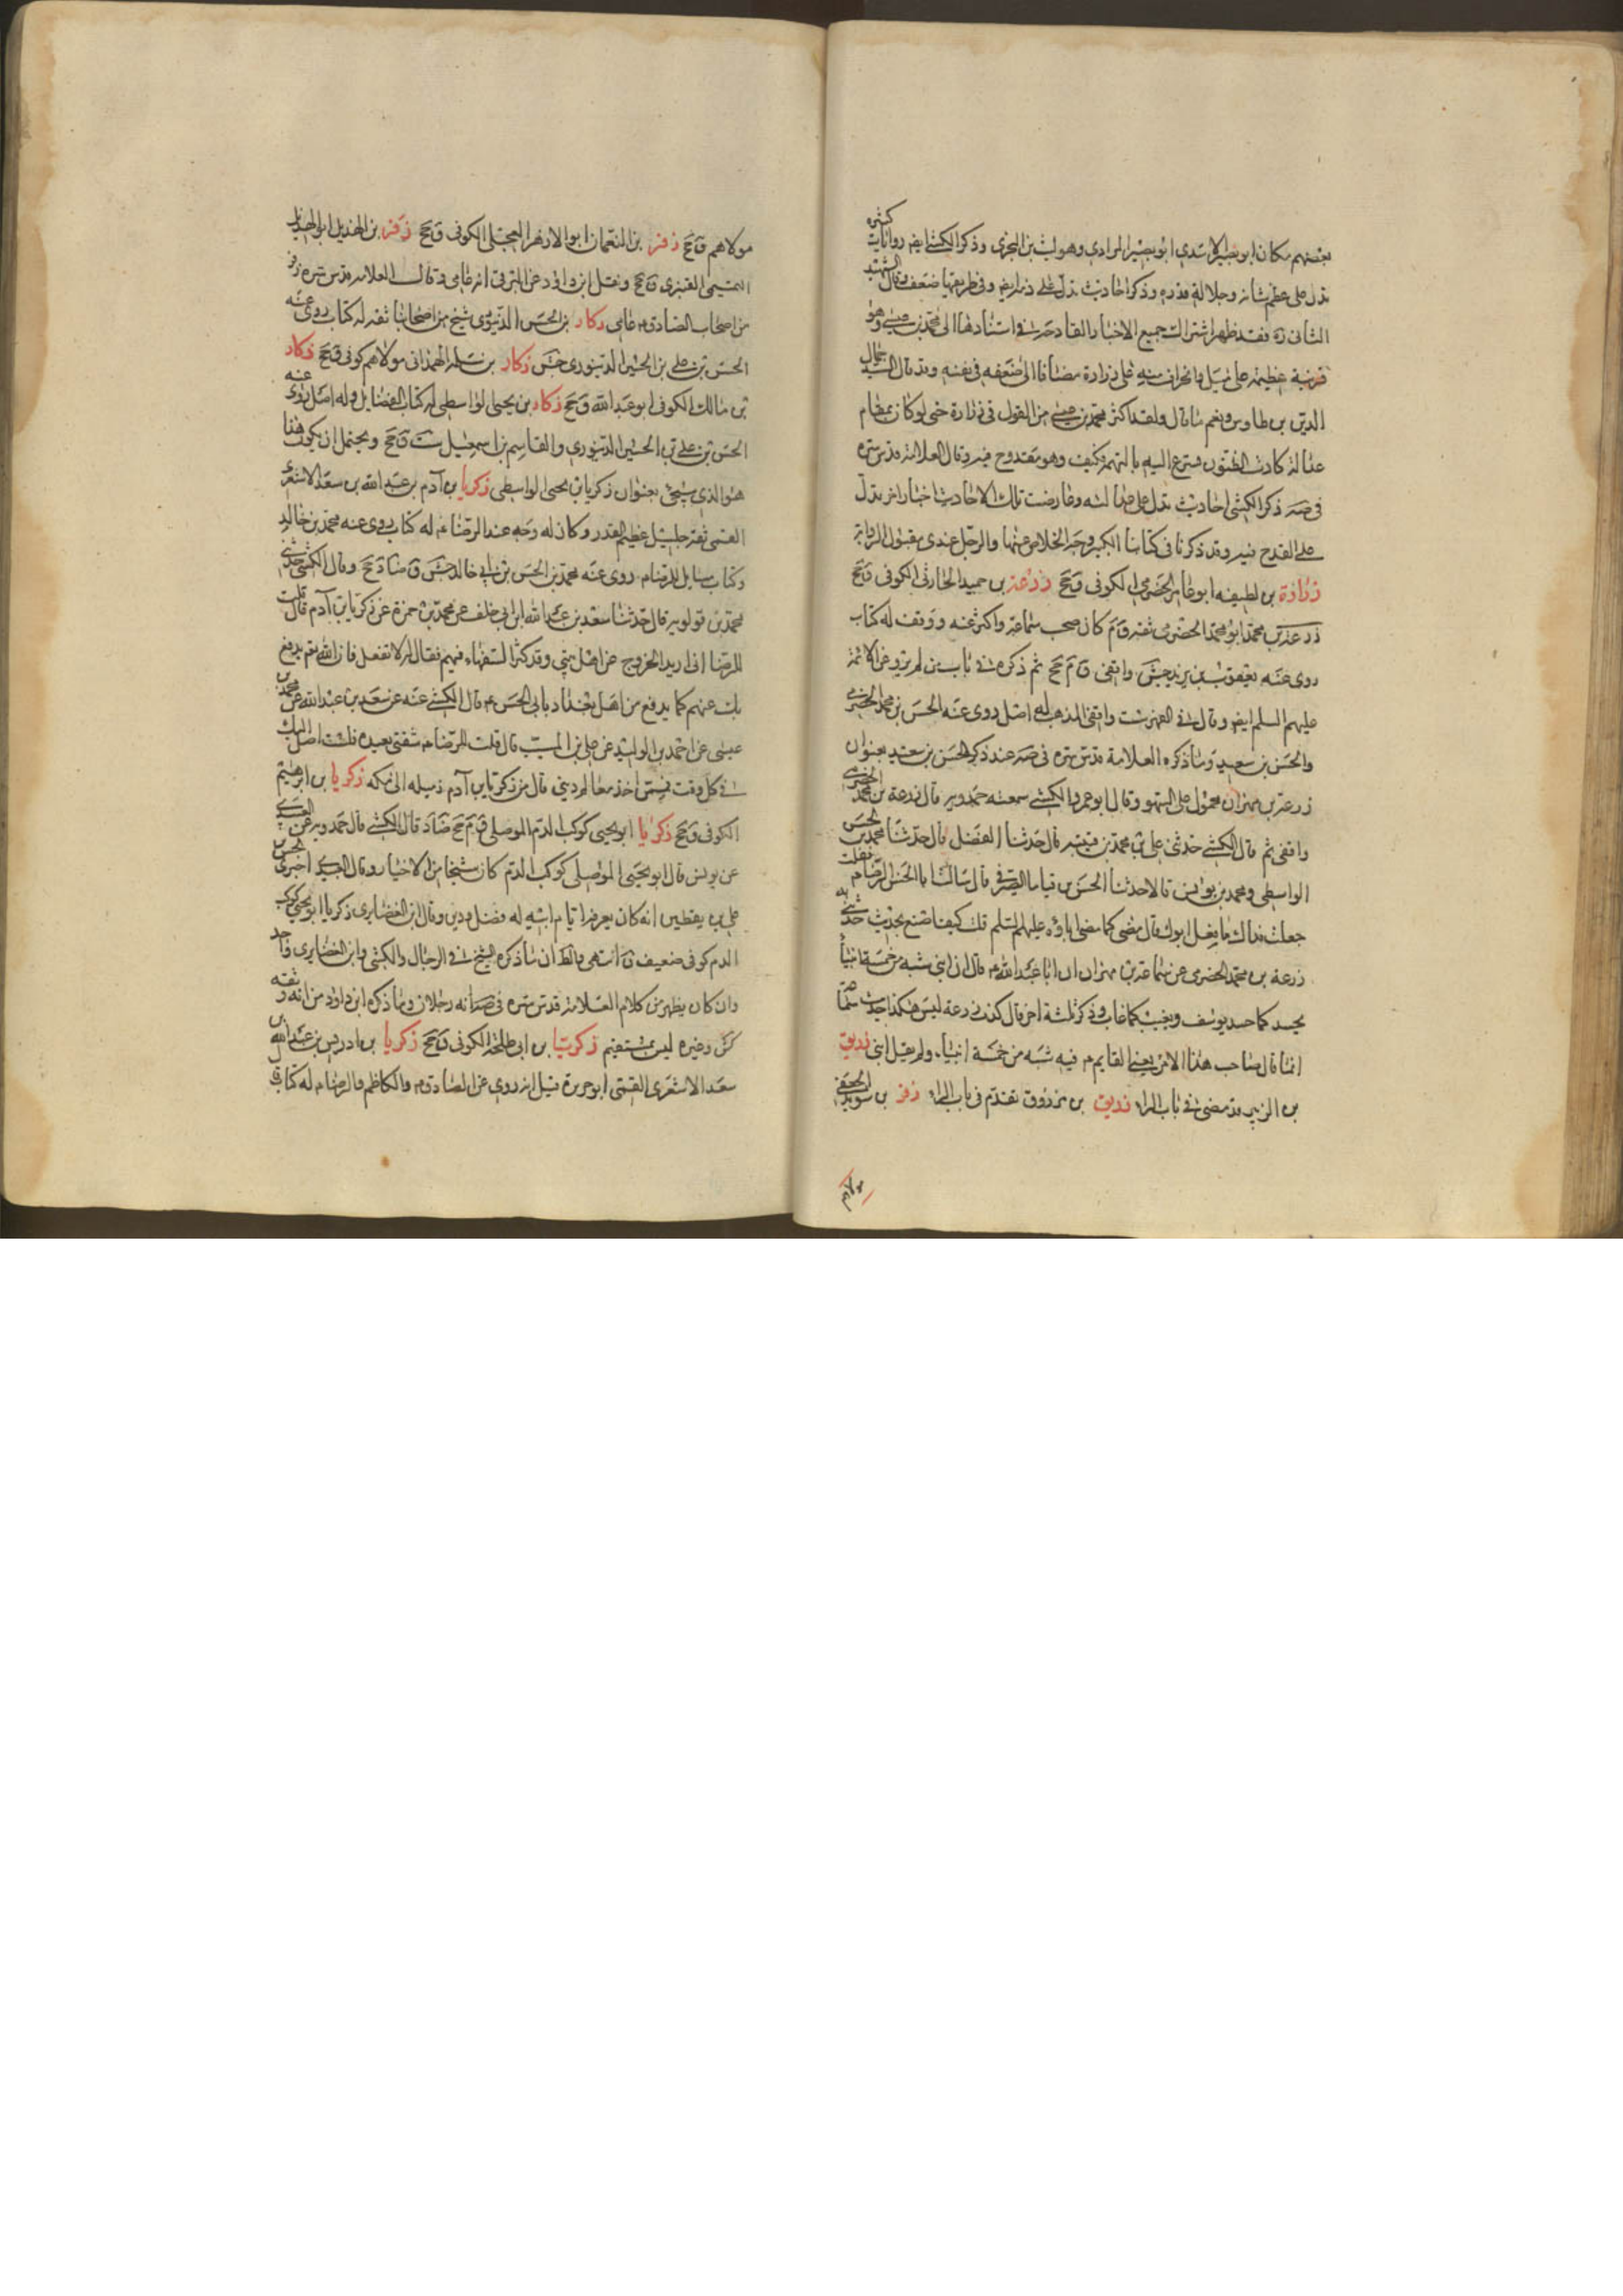 بعضهم مكان ابو بصير الاسدي ابو بصير المرادي وهو ليث بن البختري وذكر الكشي ايضا روايات كثيرة
تدل على عظم شانه وجلالة قدره وذكر احاديث تدل على ذم ايضا وفي طريقها ضعف وقال الشهيد
الثاني ره فقد ظهر اشتراك جميع الاخبار القادحة في استنادها الى محمد بن عيسى وهو
قرينة عظيمة على ميل وانحراف منه على زرارة مضافا الى ضعفه في نفسه وقد قال السيد جمال
الدين بن طاوس ونعم ما قال ولقد اكثر محمد بن عيسى من القول في زرارة حتى لو كان بمقام
عدالة كادت الظنون تسرع اليه بالتهمة فكيف وهو مقدوح فيه وقال العلامة قدس سره
في صه ذكر الكشي احاديث تدل على عدالته وعارضت تلك الاحاديث اخبار اخر تدل
على القدح فيه وقد ذكرنا في كتابنا الكبير وجه الخلاص عنها والرجل عندي مقبول الرواية
زرارة بن لطيفه ابو عامر الحضرمي الكوفي ق جخ زرعة بن حميد الحارثي الكوفي ق جخ
زرعة بن محمد ابو محمد الحضرمي ثقه ق م كان صحب سماعة واكثر عنه ووقف له كتاب
روى عنه يعقوب بن يزيد جش واقفي ق م جخ ثم ذكره في باب من لم يرو عن الائمة
عليهم السلم ايضا وقال في الفهرست واقفي المذهب له اصل روى عنه الحسن بن محمد الحضرمي
والحسن بن سعيد وما ذكره العلامة قدس سره في صه عند ذكر الحسن بن سعيد بعنوان
زرعة بن مهران محمول على السهو وقال ابو عمرو الكشي سمعته حمدويه قال زرعة بن محمد الحضرمي
واقفي ثم قال الكشي حدثني علي بن محمد بن قتيبة قال حدثنا الفضل قال حدثنا محمد بن الحسن
الواسطي ومحمد بن يونس قالا حدثنا الحسن بن قياما الصيرفي قال سالت ابا الحسن الرضا م فقلت
جعلت فداك ما فعل ابوك قال مضى كما مضى اباؤه عليهم السلم قلت كيف اصنع بحديث حدثني به
زرعة بن محمد الحضرمي عن سماعة بن مهران ان ابا عبد الله م قال ان ابني شبه من خمسة انبيا
يحسد كما حسد يوسف ويغيب كما غاب وذكر ثلثة اخر قال كذب زرعة ليس هكذا حديث سماعة
انما قال صاحب هذا الامر يعني القايم م فيه شبه من خمسة انبياء ولم يقل ابني زريق
بن الزبير قد مضى في باب الراء زريق بن مرزوق تقدم في باب الراء زفر بن سويد الجعفي
مولاهم
مولاهم ق جخ زفر بن النعمان ابو الازهر العجلي الكوفي ق جخ زفر بن الهذيل ابو الهذيل
التميمي العنبري ق جخ ونقل ابن داود عن البرقي انه عامي وقال العلامة قدس سره زفر
من اصحاب الصادق م عامي زكار بن الحسن الدينوري شيخ من اصحابنا ثقه له كتاب روى عنه
الحسن بن علي بن الحسين الدينوري جش زكار بن سلمه الهمداني مولاهم كوفي ق جخ زكار
بن مالك الكوفي ابو عبد الله ق جخ زكار بن يحيى الواسطي له كتاب الفضايل وله اصل روى عنه
الحسن بن علي بن الحسين الدينوري والقاسم بن اسمعيل ست ق جخ ويحتمل ان يكون هذا
هو الذي سيجئ بعنوان زكريا بن يحيى الواسطي زكريا بن آدم بن عبد الله بن سعد الاشعري
القمي ثقه جليل عظيم القدر وكان له وجه عند الرضا م له كتاب روى عنه محمد بن خالد
وكتاب مسايل للرضا م روى عنه محمد بن الحسن بن ابي خالد جش ق ضا د جخ وقال الكشي حدثني
محمد بن قولويه قال حدثنا سعد بن عبد الله ابن ابي خلف عن محمد بن حمزة عن زكريا بن آدم قال قلت
للرضا اني اريد الخروج عن اهل بيتي وقد كثر السفهاء فيهم فقال لي لا تفعل فان الله تعم يدفع
بك عنهم كما يدفع من اهل بغداد بابي الحسن م قال الكشي عنه عن سعد بن عبد الله عن محمد بن
عيسى عن احمد بن الوليد عن علي بن المسيب قال قلت للرضا م شقتي بعيده فلست اصل اليك
في كل وقت فممن اخذ معالم ديني قال من زكريا بن آدم زكريا بن ابرهيم
الكوفي ق جخ زكريا ابو يحيى كوكب الدم الموصلي ق م جخ قال الكشي قال حمدويه عن العبيدي
عن يونس قال ابو يحيى الموصلي كوكب الدم كان شيخا من الاخيار وقال العبيدي اخبرني الحسن بن
علي بن يقطين انه كان يعرفه ايام ابيه له فضل ودين وقال ابن الغضايري زكريا ابو يحيى كوكب
الدم كوفي ضعيف ق انتهى والظ ان ما ذكره الشيخ في الرجال والكشي وابن الغضايري واحد
وان كان يظهر من كلام العلامة قدس سره في صه انه رجلان وما ذكره ابن داود من انه ثقه
كش وغيره ليس بمستقيم زكريا بن ابي طلحة الكوفي ق جخ زكريا بن ادريس بن عبد الله بن
سعد الاشعري القمي ابو جرير قيل انه روى عن الصادق م والكاظم والرضا م له كتاب